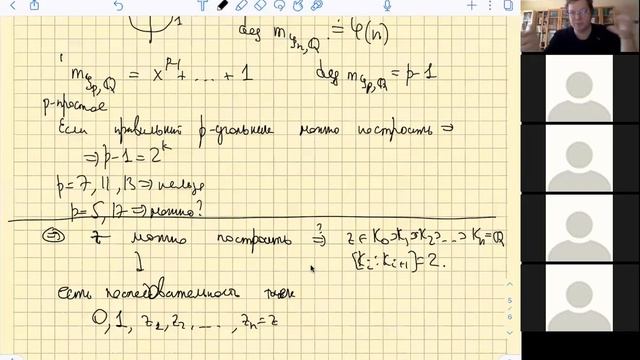 1
deg m_{ξ_n,ℚ} = φ(n)
m_{ξ_p,ℚ} = x^{p-1} + ... + 1    deg m_{ξ_p,ℚ} = p-1
p-простое
Если правильный p-угольник можно построить ⇒
⇒ p-1 = 2^k
p = 7, 11, 13 ⇒ нельзя
p = 5, 17 ⇒ можно?
⇒ z можно построить ⇒? z ∈ K_0 ⊃ K_1 ⊃ K_2 ⊃ ... ⊃ K_n = ℚ
[K_i : K_{i+1}] = 2.
Есть последовательность точек
0, 1, z_1, z_2, ..., z_n = z
5
6